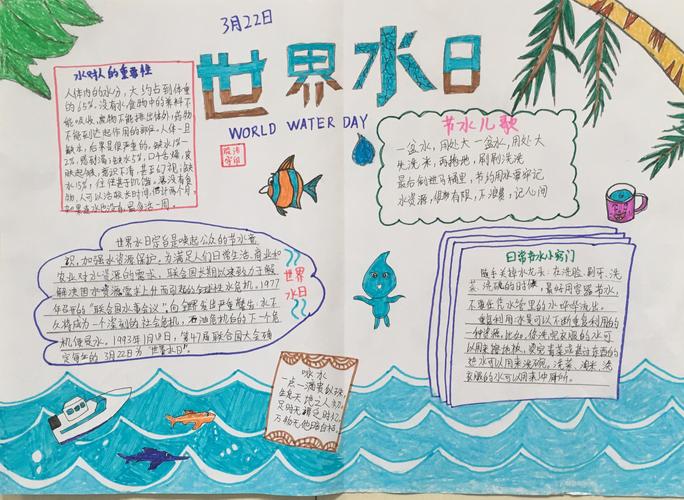 3月22日
世界水日
WORLD WATER DAY
水对人的重要性
人体内的水分，大约占到体重
的65%。没有水食物中的养料不
能吸收，废物不能排出体外，药物
不能到达起作用的部位。人体一旦
缺水，后果是很严重的。缺水1%-
2%，感到渴；缺水5%，口干舌燥，皮
肤起皱，意识不清，甚至幻视；缺
水15%，往往甚于饥饿。没有食
物，人可以活较长时间，
如果连水也没有，最多活一周。
节水儿歌
一盆水，用处大 一盆水，用处大
先洗米，再拖地，刷刷洗洗
最后倒进马桶里，节约用水要牢记
水资源，很有限，不浪费，记心间
世界水日宗旨是唤起公众的节水意
识，加强水资源保护。为满足人们日常生活、商业和
农业对水资源的需求，联合国长期以来致力于解
决因水资源需求上升而引起的全球性水危机。1977
年召开的"联合国水事会议"，向全世界发出严重警告：水不
久将成为一个深刻的社会危机，石油危机后的下一个危
机便是水。1993年1月18日，第47届联合国大会确
定每年的3月22日为"世界水日"。
世界
水日
日常节水小窍门
随手关掉水龙头：在洗脸、刷牙、洗
菜、洗碗的时候，最好用容器节水，
不要任凭水管里的水哗哗流出。
重复利用：水是可以不断重复利用的
一种资源。比如，你洗完衣服的水可
以用来擦地板，
水可以用来洗碗。洗菜、淘米、洗
衣服的水可以用来冲厕所。
咏水
点一滴贵似珠，